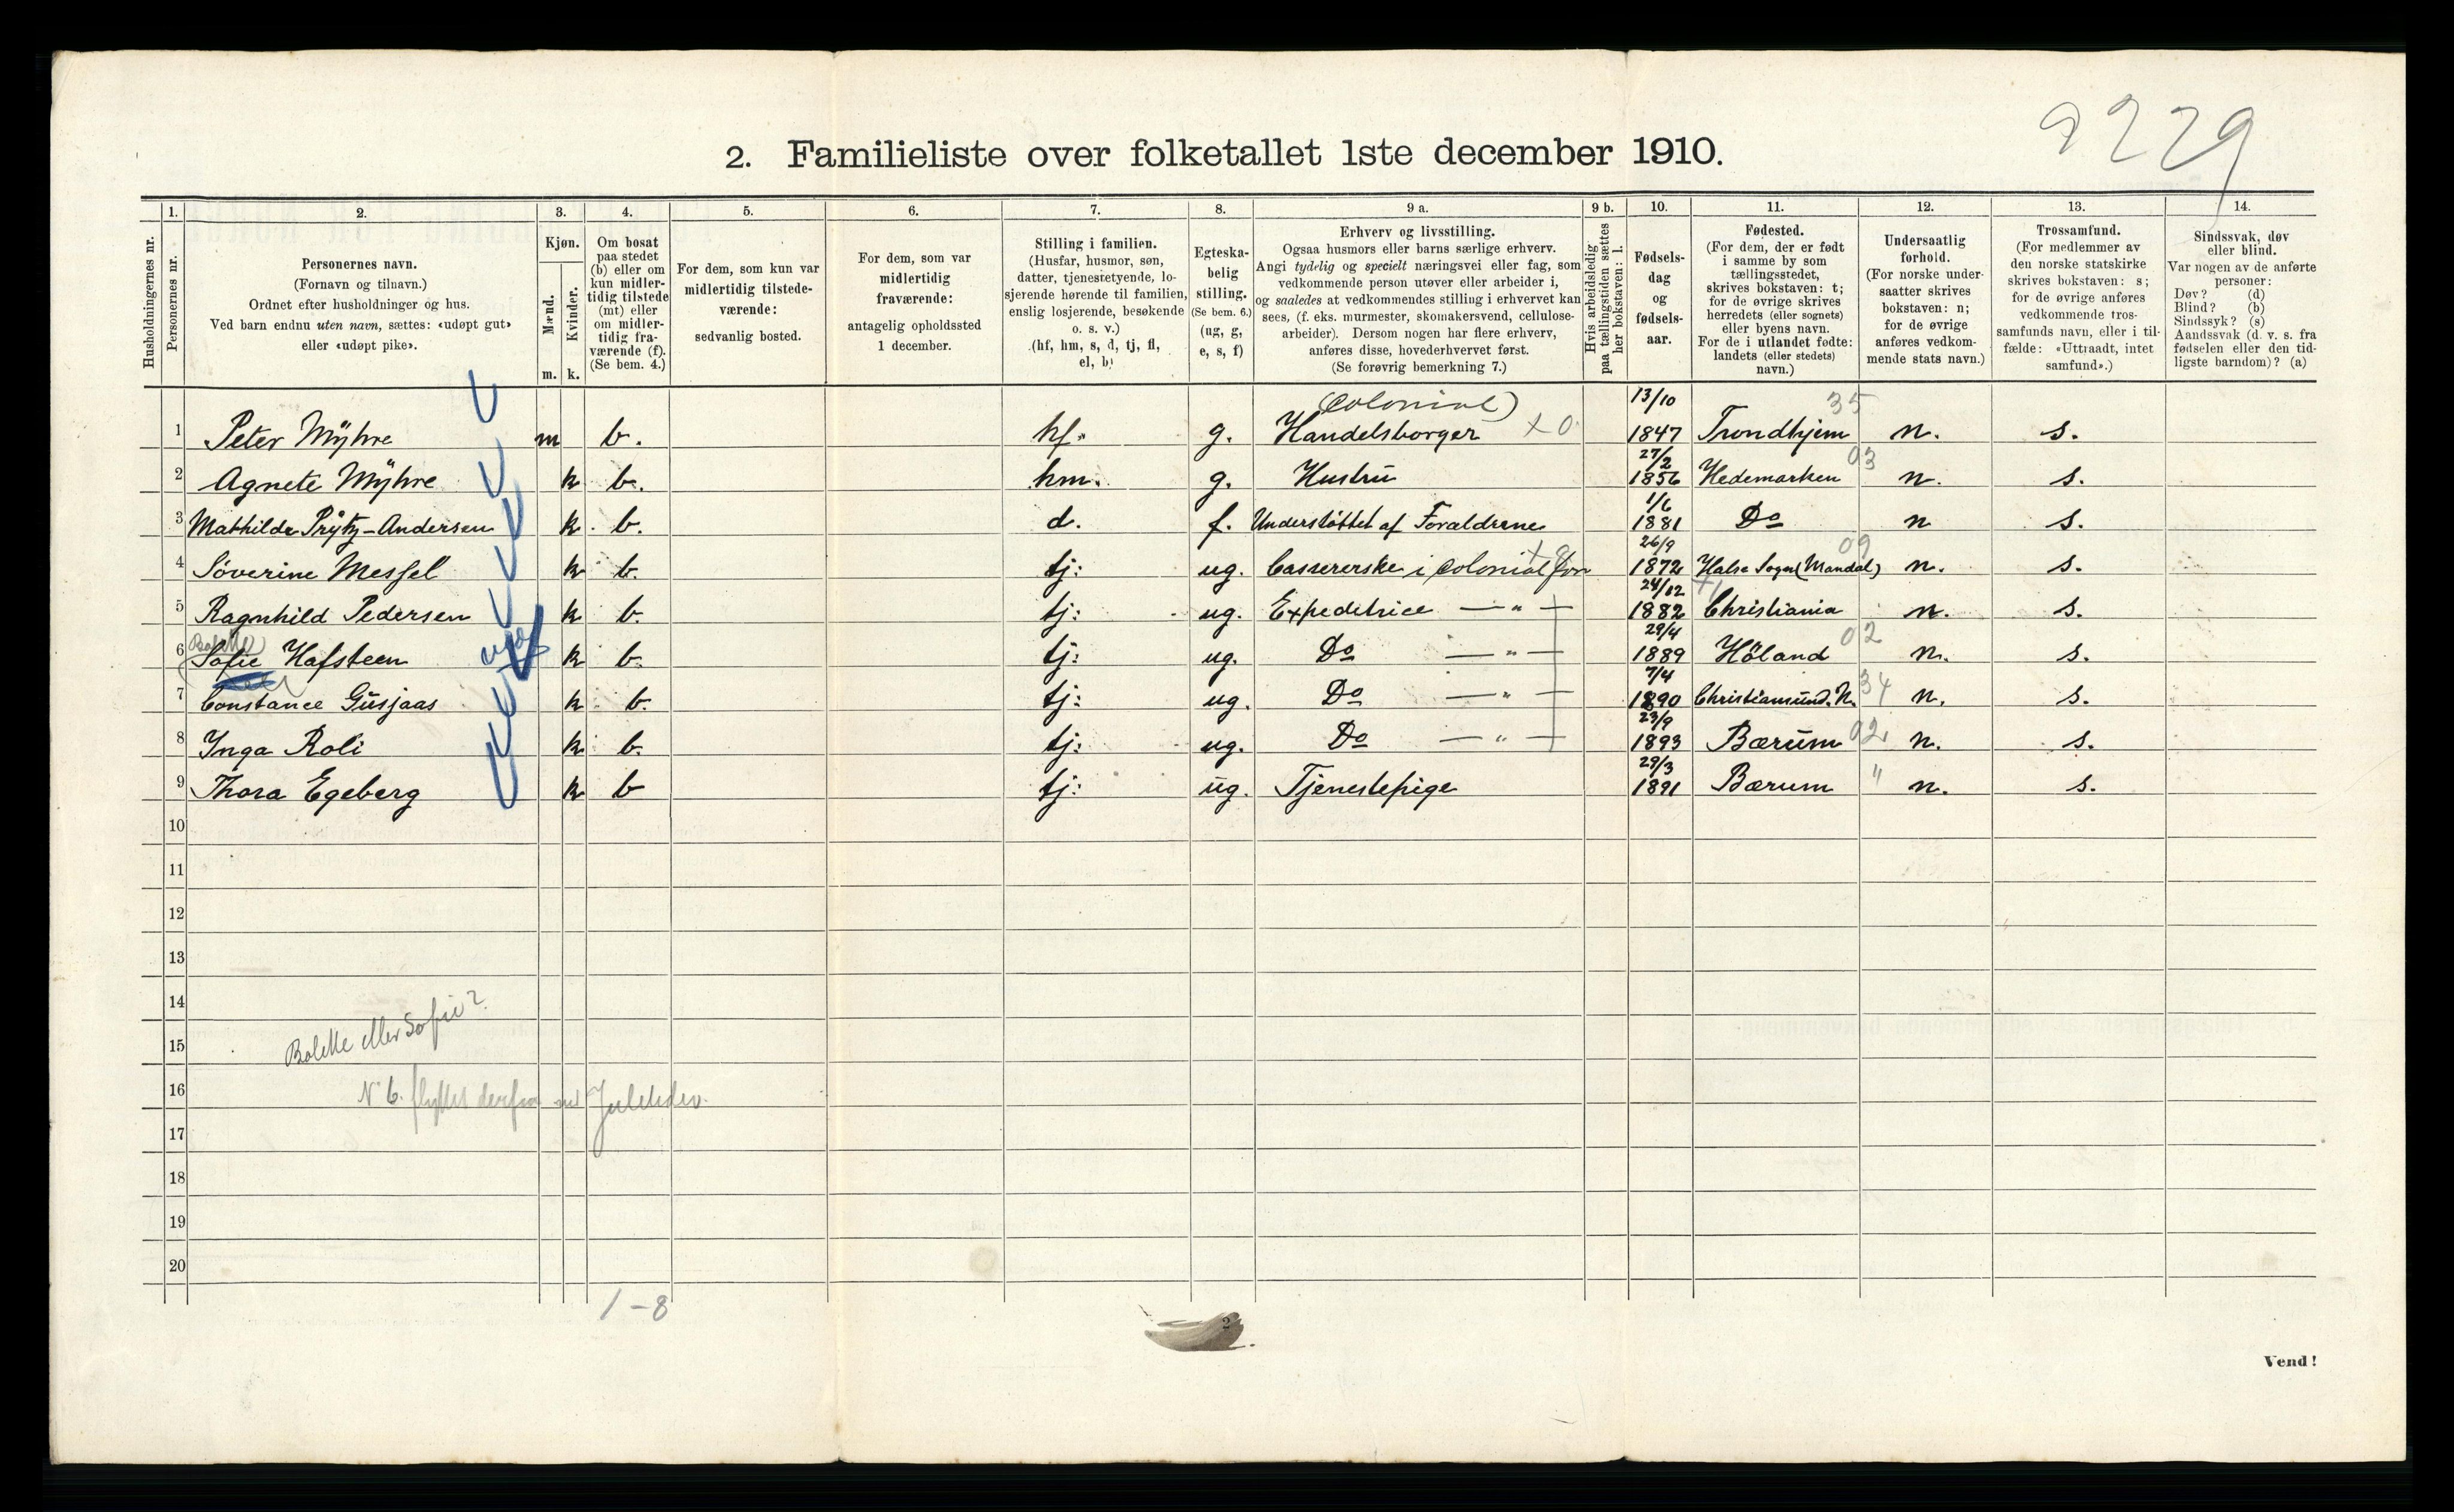 9229
2. Familieliste over folketallet 1ste december 1910.
1. 2. 3. 4. 5. 6. 7. 8. 9 a. 9 b. 10. 11. 12. 13. 14.
Husholdningernes nr.
Personernes nr.
Personernes navn.
(Fornavn og tilnavn.)
Ordnet efter husholdninger og hus.
Ved barn endnu uten navn, sættes: «udøpt gut»
eller «udøpt pike».
Kjøn.
Mænd.
Kvinder.
m. k.
Om bosat
paa stedet
(b) eller om
kun midler-
tidig tilstede
(mt) eller
om midler-
tidig fra-
værende (f).
(Se bem. 4.)
For dem, som kun var
midlertidig tilstede-
værende:
sedvanlig bosted.
For dem, som var
midlertidig
fraværende:
antagelig opholdssted
1 december.
Stilling i familien.
(Husfar, husmor, søn,
datter, tjenestetyende, lo-
sjerende hørende til familien,
enslig losjerende, besøkende
o. s. v.)
(hf, hm, s, d, tj, fl,
el, b)
Egteska-
belig
stilling.
(Se bem. 6.)
(ug, g,
e, s, f)
Erhverv og livsstilling.
Ogsaa husmors eller barns særlige erhverv.
Angi tydelig og specielt næringsvei eller fag, som
vedkommende person utøver eller arbeider i,
og saaledes at vedkommendes stilling i erhvervet kan
sees, (f. eks. murmester, skomakersvend, cellulose-
arbeider). Dersom nogen har flere erhverv,
anføres disse, hovederhvervet først.
(Se forøvrig bemerkning 7.)
Hvis arbeidsledig
paa tællingstiden sættes
her bokstaven: l.
Fødsels-
dag
og
fødsels-
aar.
Fødested.
(For dem, der er født
i samme by som
tællingsstedet,
skrives bokstaven: t;
for de øvrige skrives
herredets (eller sognets)
eller byens navn.
For de i utlandet fødte:
landets (eller stedets)
navn.)
Undersaatlig
forhold.
(For norske under-
saatter skrives
bokstaven: n;
for de øvrige
anføres vedkom-
mende stats navn.)
Trossamfund.
(For medlemmer av
den norske statskirke
skrives bokstaven: s;
for de øvrige anføres
vedkommende tros-
samfunds navn, eller i til-
fælde: «Uttraadt, intet
samfund».)
Sindssvak, døv
eller blind.
Var nogen av de anførte
personer:
Døv? (d)
Blind? (b)
Sindssyk? (s)
Aandssvak (d. v. s. fra
fødselen eller den tid-
ligste barndom)? (a)
(Colonial) 13/10 35
1 Peter Mÿhre m b. hf. g. Handelsborger x 0 1847 Trondhjem n. s.
27/2 03
2 Agnete Mÿhre k b. hm. g. Hustru 1856 Hedemarken n. s.
1/6
3 Mathilde Prÿtz-Andersen k. b. d. f. Understöttet af Foraldrene 1881 Do n s.
26/9 09
4 Söverine Messel k b. tj: ug. Cassererske i Colonial 1872 Halse Sogn (Mandal) n. s.
24/12
5 Ragnhild Pedersen k b. tj: ug. Expeditrice — " — 1882 Christiania n. s.
Bolette 29/4 02
6 Sofie Hafsteen k b. tj: ug. Do — " — 1889 Höland n. s.
7/4 34
7 Constance Gusjaas k b. tj: ug. Do — " — 1890 Christiansund. N. n. s.
23/9 02
8 Inga Roli k b. tj: ug. Do — " — 1893 Bærum n. s.
29/3
9 Thora Egeberg k b tj: ug. Tjenestepige 1891 Bærum " n. s.
10
11
12
13
14
Bolette eller Sofie?
15
16 N 6. flyttet derfra
17
18
19
20
1 - 8
2
Vend!